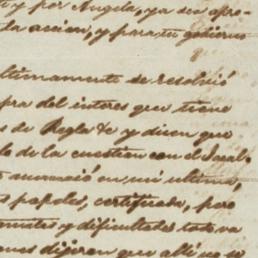 y por Angela, ya sea apro-
la accion, y para tu gobierno
ultimamente se resolvió
pra del interes que tiene
s de Regla &c y dicen que
de la cuestion con el
anunció en mi ultima,
s papeles, certificado, pero
y dificultades toda va
dijeron que alli no se